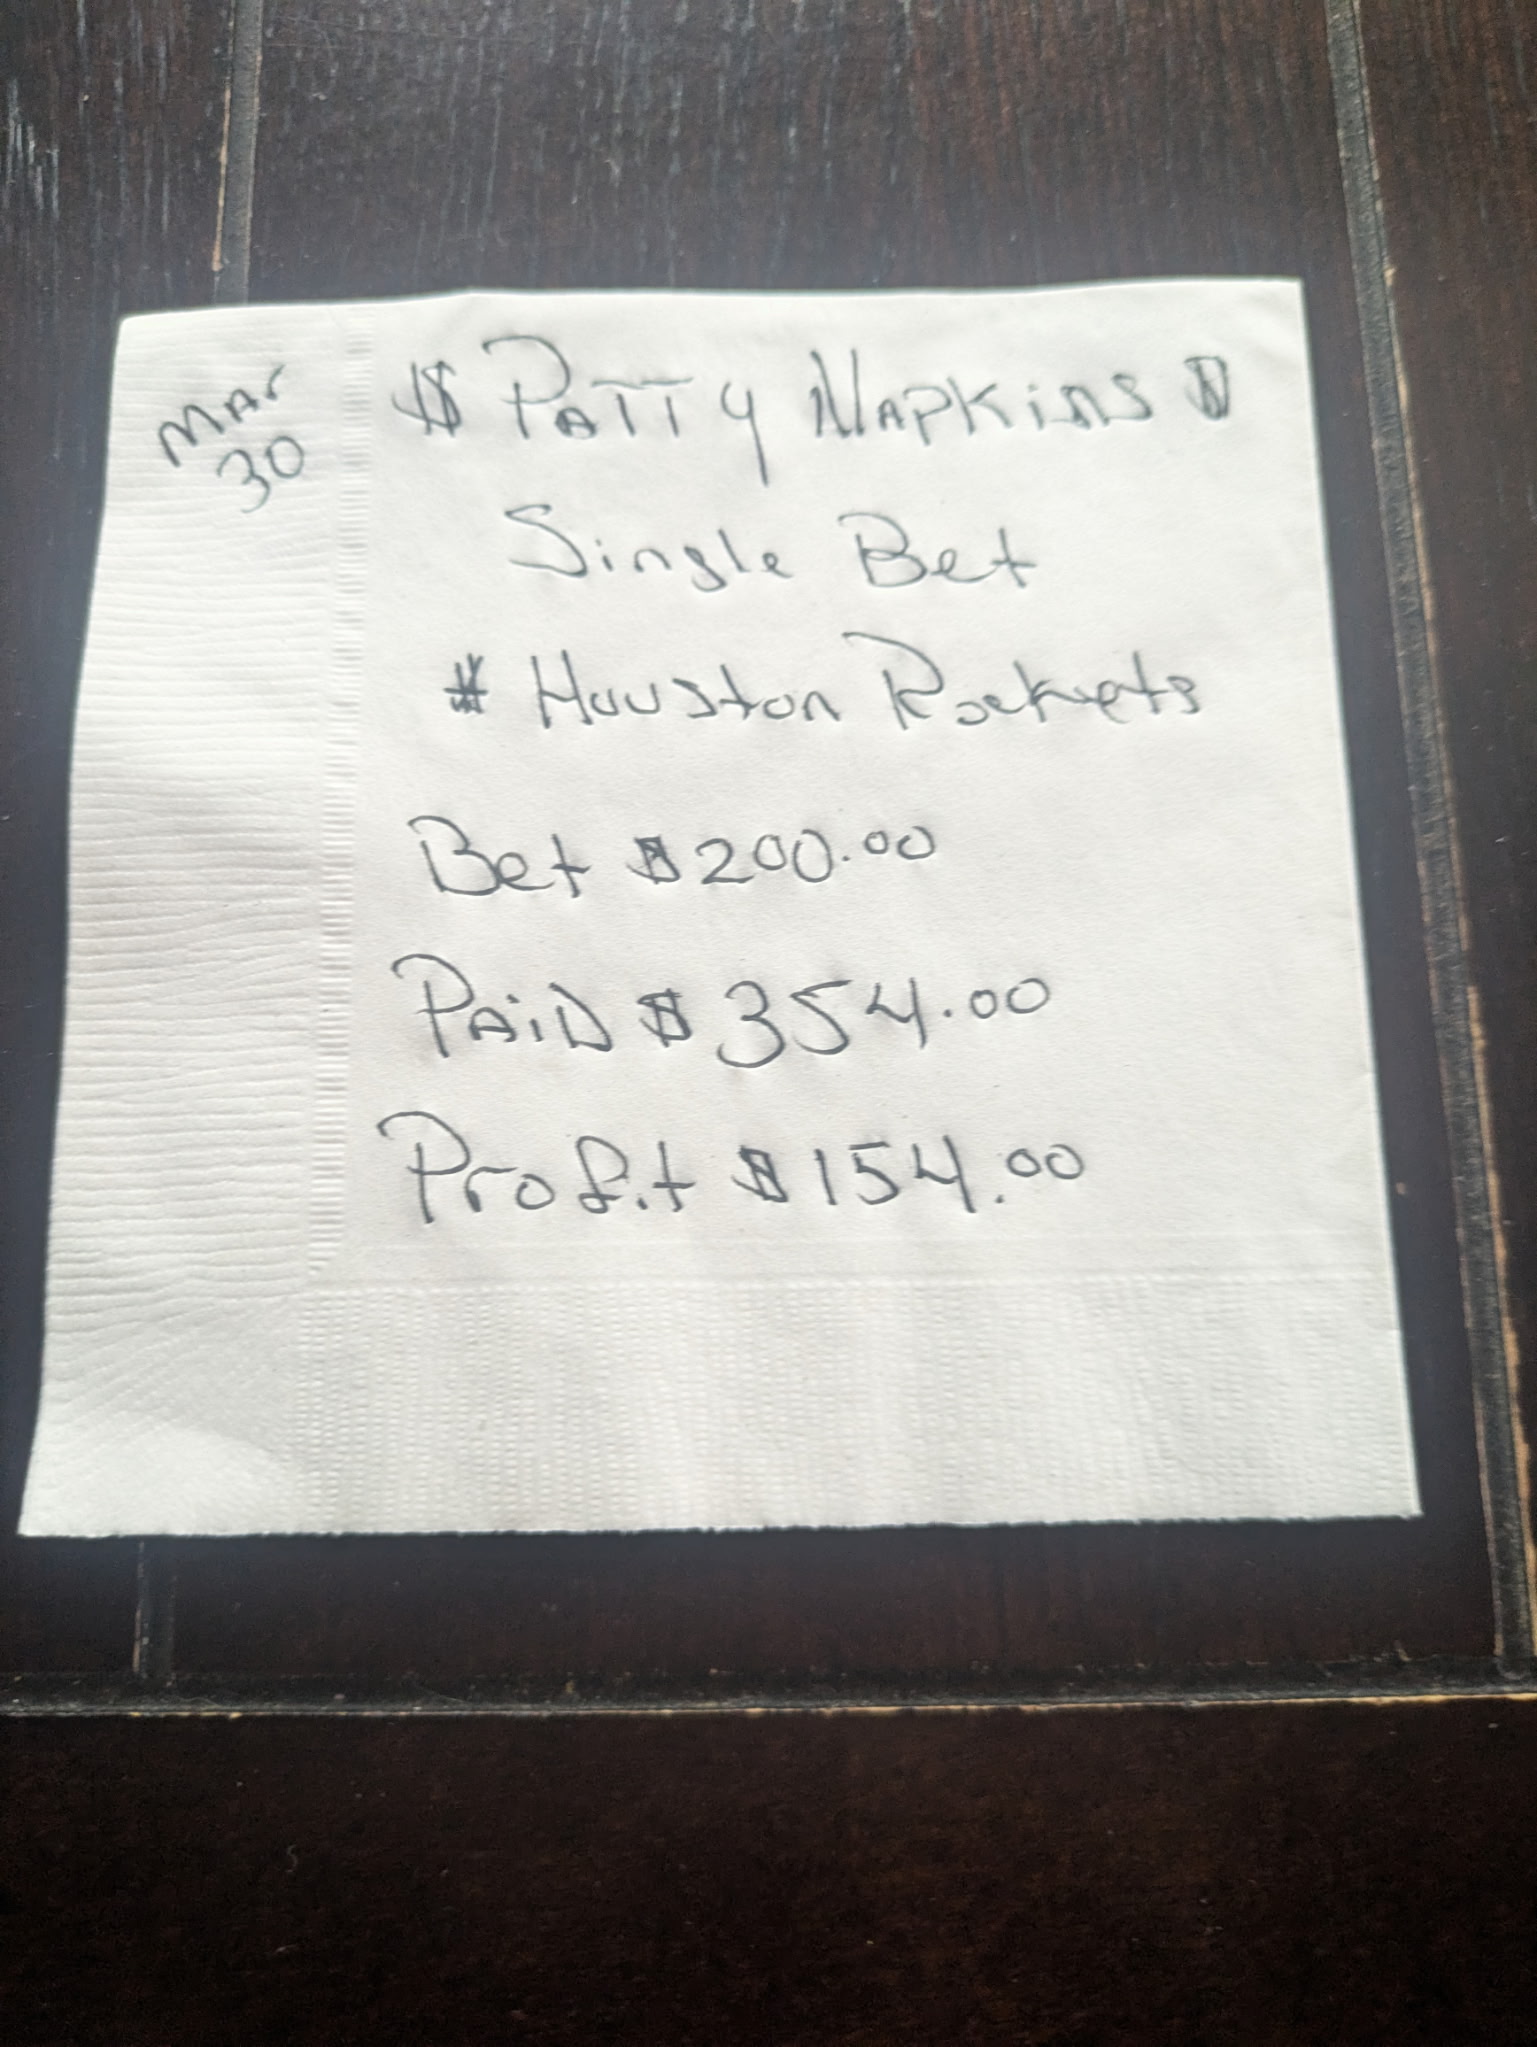 Mar
30
$ Patty Napkins $
Single Bet
# Houston Rockets
Bet $200.00
Paid $354.00
Profit $154.00